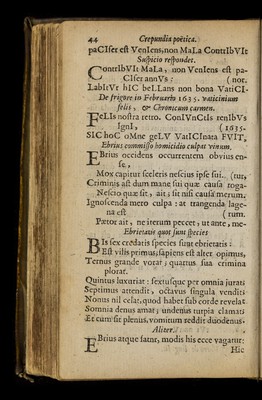 44 Crepundia poëtica.
paCIfer eſt VenIens, non MaLa ContrIbVIt
Suſpicio reſpondet.
ContrIbVIt MaLa, non VenIens eſt pa-
CIfer annVs: (nor.
LabItVr hIC beLLans non bona VatICI-
De frigore in Februario 1635. vaticinium
felis, & Chronicum carmen.
FeLIs noſtra retro. ConIVnCtIs renIbVs
IgnI, (1635.
SIC hoC oMne geLV VatICInata FVIT,
Ebrius commiſſo homicidio culpat vinum.
EBrius occidens occurrentem obvius en-
ſe, (tur,
Mox capitur ſceleris neſcius ipſe ſui..
Criminis aſt dum mane ſui quæ cauſa roga-
Neſcio quæ ſit, ait; ſit niſi cauſa merum.
Ignoſcenda mero culpa: at trangenda lage-
na eſt (rum.
Pœtor ait, ne iterum peccet, ut ante, me-
Ebrietatis quot ſunt ſpecies
BIs ſex credaris ſpecies ſunt ebrietatis:
Eſt vilis primus, ſapiens eſt alter opimus,
Ternus grande vorat, quartus ſua crimina
plorat.
Quintus luxuriat: ſextuſque per omnia jurat
Septimus attendit, octavus ſingula vendit
Nonus nil celat, quod habet ſub corde revelat
Somnia denus amat; undenus turpia clamat
Et cum ſit plenus, vomitum reddit duodenus.
Aliter.
EBrius atque ſatur, modis his ecce vagatur:
Hic